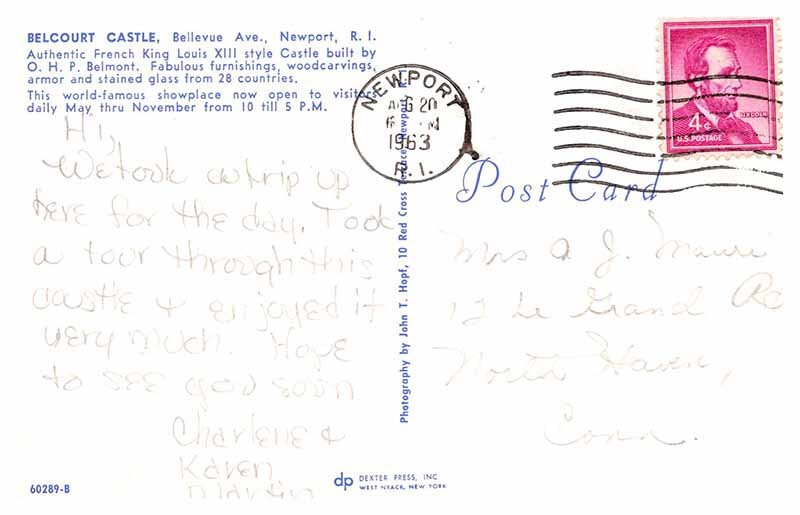 BELCOURT CASTLE, Bellevue Ave., Newport, R. I.
Authentic French King Louis XIII style Castle built by
O. H. P. Belmont. Fabulous furnishings, woodcarvings,
armor and stained glass from 28 countries.
This world-famous showplace now open to visitors
daily May thru November from 10 till 5 P.M.
Hi,
We took a trip up
here for the day. Took
a tour through this
castle & enjoyed it
very much. Hope
to see you soon
Charlene &
Karen
Martin
60289-B
NEWPORT
AUG 20
1963
R.I.
4¢
LINCOLN
U.S. POSTAGE
Post Card
Mrs A J. Mauri
12 Le Grand Rd
North Haven,
Conn.
Photography by John T. Hopf, 10 Red Cross Terrace, Newport, R.
dp DEXTER PRESS, INC
WEST NYACK, NEW YORK